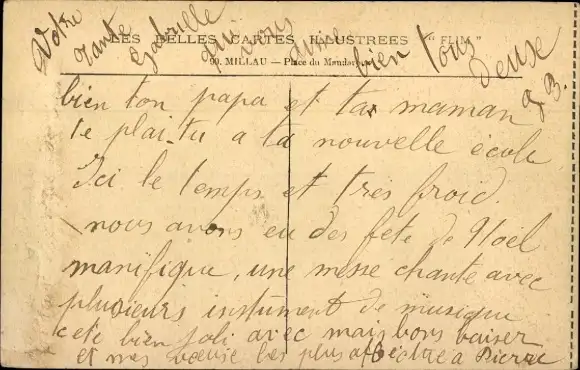 Votre tante Gabrielle qui vous aime bien tous deuse
G B.
LES BELLES CARTES ILLUSTREES "FLIM"
90. MILLAU — Place du Mandarous
bien ton papa et ta maman
te plai-tu a ta nouvelle école
Ici le temps et très froid.
nous avons eu des fete de Noël
manifique, une messe chante avec
plusieurs instument de musique
cete bien joli avec mais bons baiser
et mes voeuse les plus afectre a Pierre